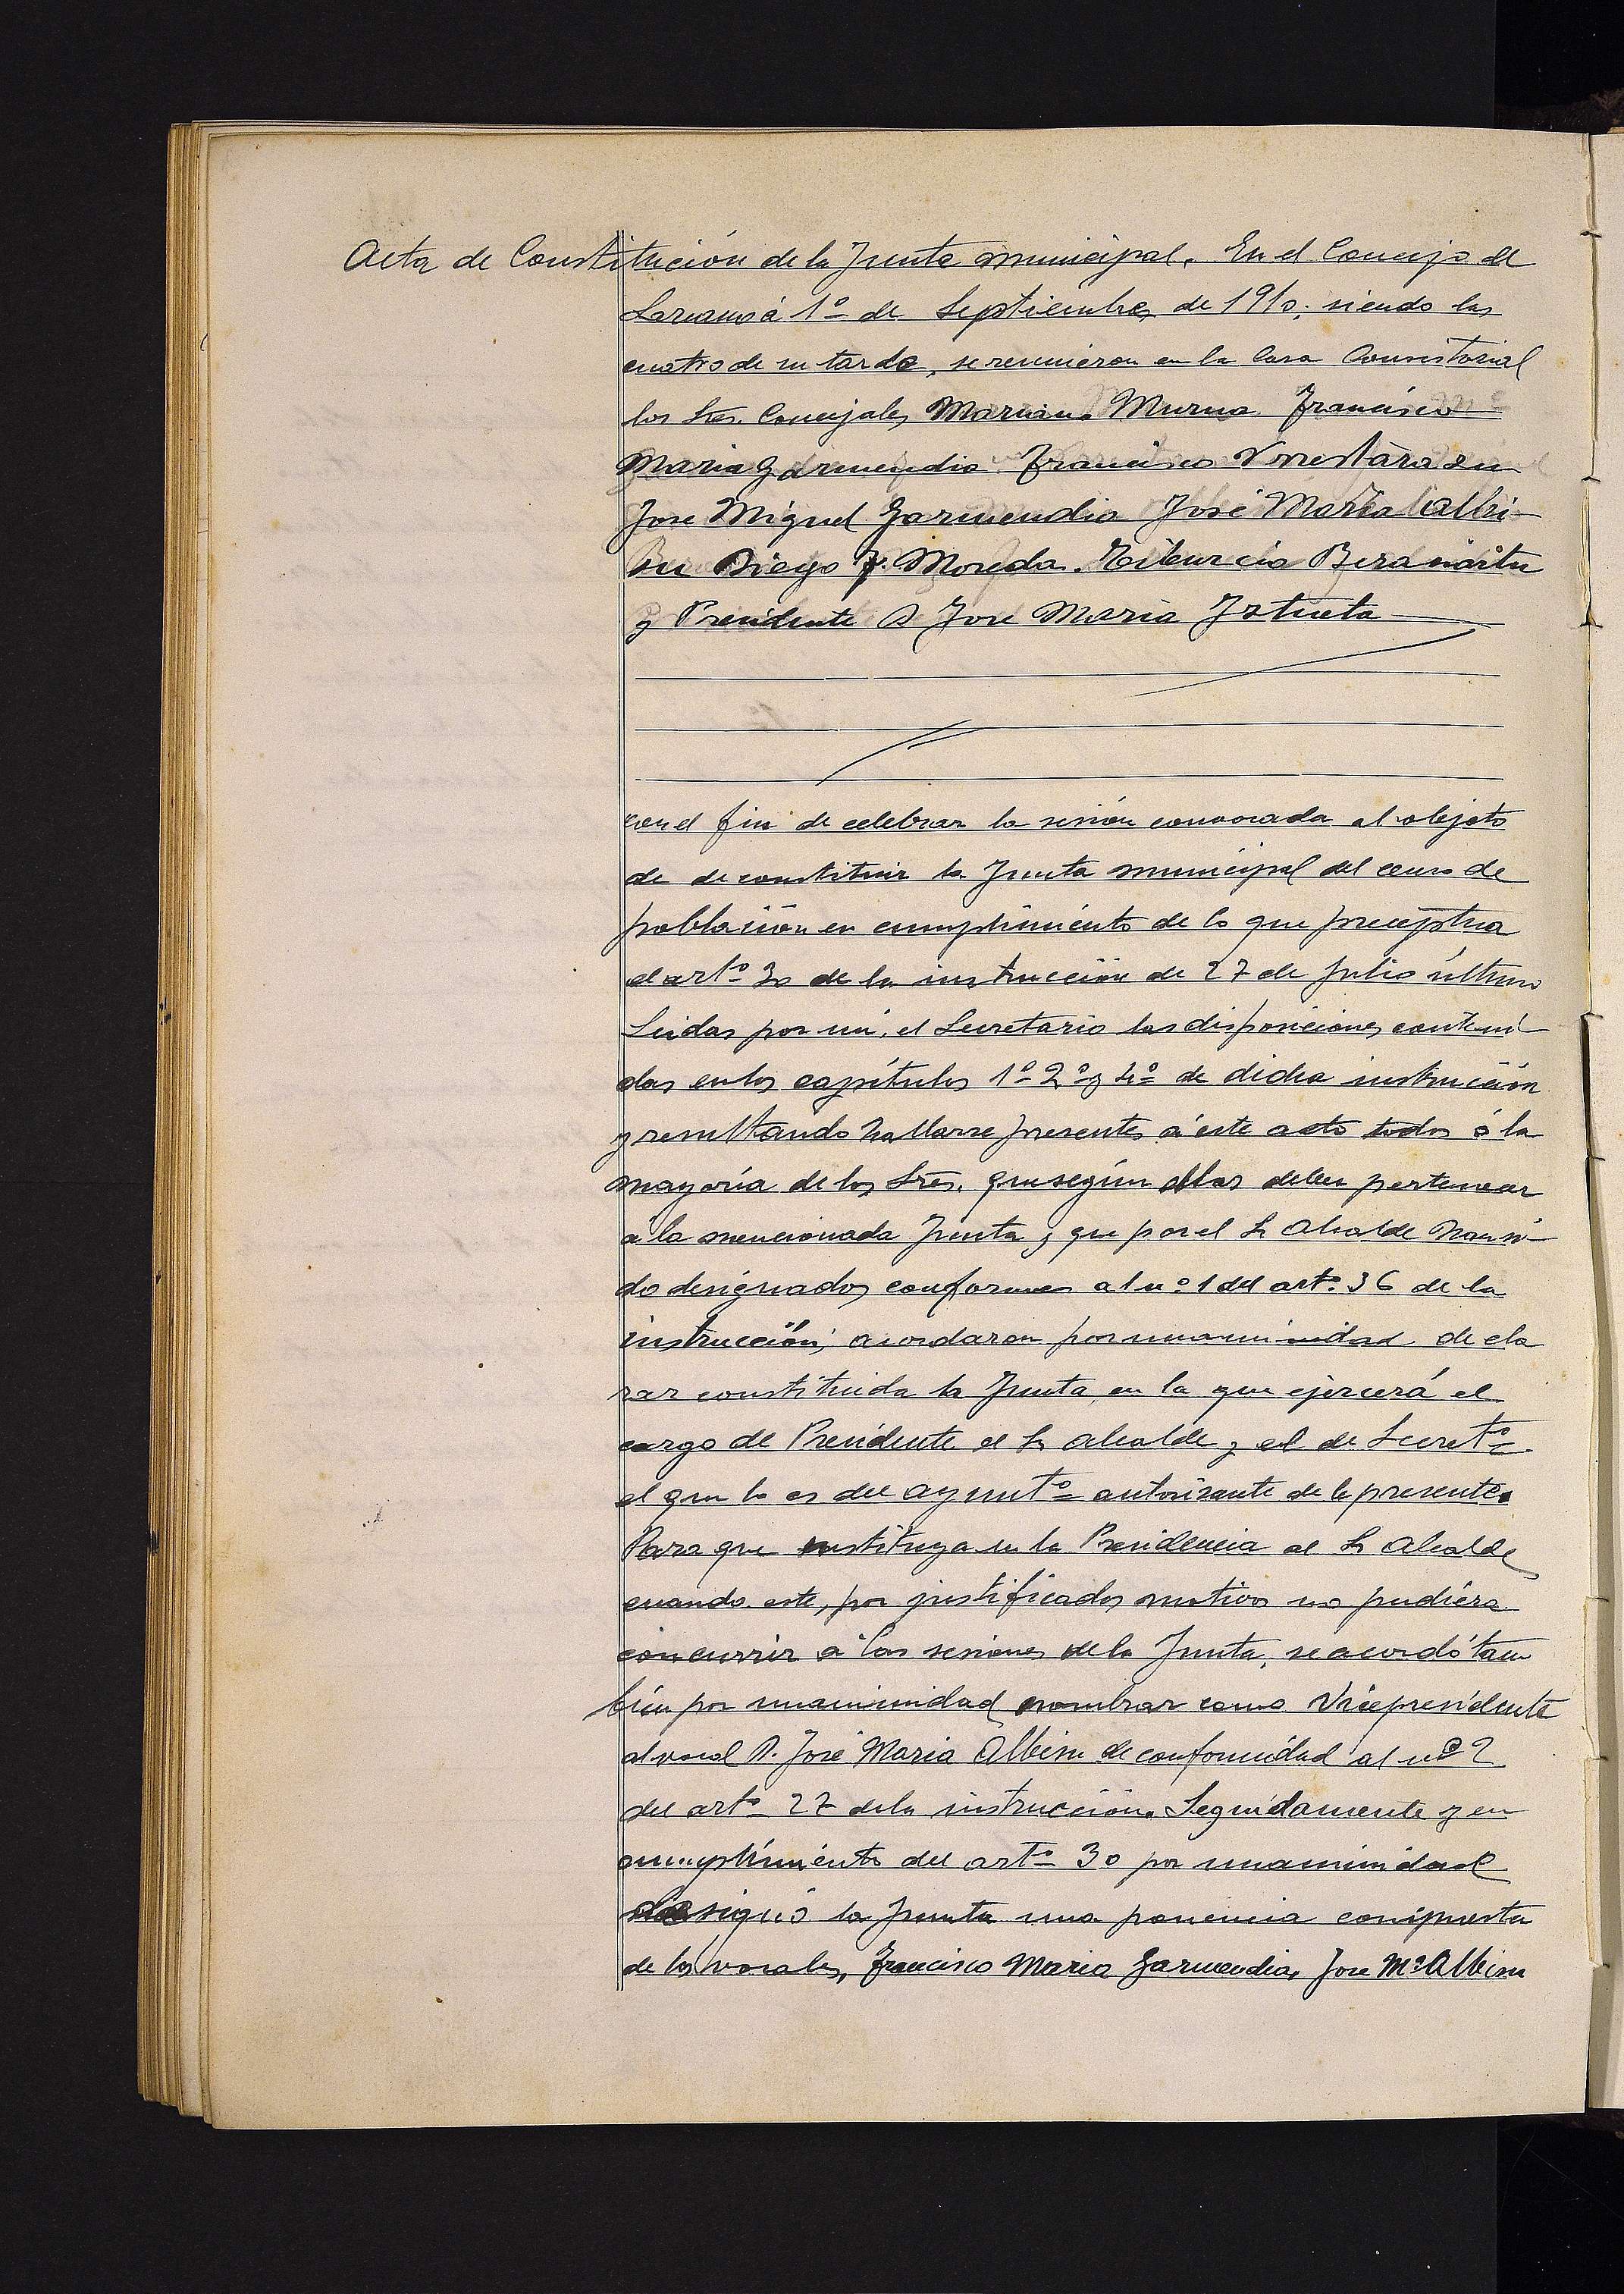 Acta de Constitución de la Junta municipal. En el Concejo de
Larraul á 1º de Septiembre de 1910; siendo las
cuatro de su tarde, se reunieron en la Casa Consistorial
los Sres. Concejales Mariano Murua Francisco
Maria Garmendia Francisco Yrrestarazu
Jose Miguel Garmendia José Maria Albi-
su Diego J. Moreda. Tiburcio Beranartu
y Presidente D Jose Maria Iztueta
con el fin de celebrar la sesión convocada al objeto
de de constituir la Junta municipal del censo de
población en cumplimiento de lo que preceptua
el artº 30 de la instrucción de 27 de Julio último
Leidas por mi, el Secretario las disposiciones conteni-
das en los capítulos 1º 2º y 4º de dicha instrucción
y resultando hallarse presentes á este acto todos ó la
mayoría de los Sres. que según ellas deben pertenecer
á la mencionada Junta y que por el Sr Alcalde han si-
do designados conformes al nº 1 del artº 36 de la
instrucción; acordaron por unanimidad decla
rar constituida la Junta, en la que ejercerá el
cargo de Presidente el Sr Alcalde y el de Secretº
el que lo es del ayuntº autorizante de la presente.
Para que sustituya en la Presidencia al Sr Alcalde
cuando este, por justificados motivos no pudiera
concurrir á las sesiones de la Junta, se acordó tam
bién por unanimidad nombrar como Vicepresidente
al vocal D. José Maria Albisu de conformidad al nº 2
del artº 27 de la instrucción. Seguidamente y en
cumplimiento del artº 30 por unanimidad
designó la Junta una ponencia compuesta
de los vocales, Francisco Maria Garmendia, Jose Mª Albisu